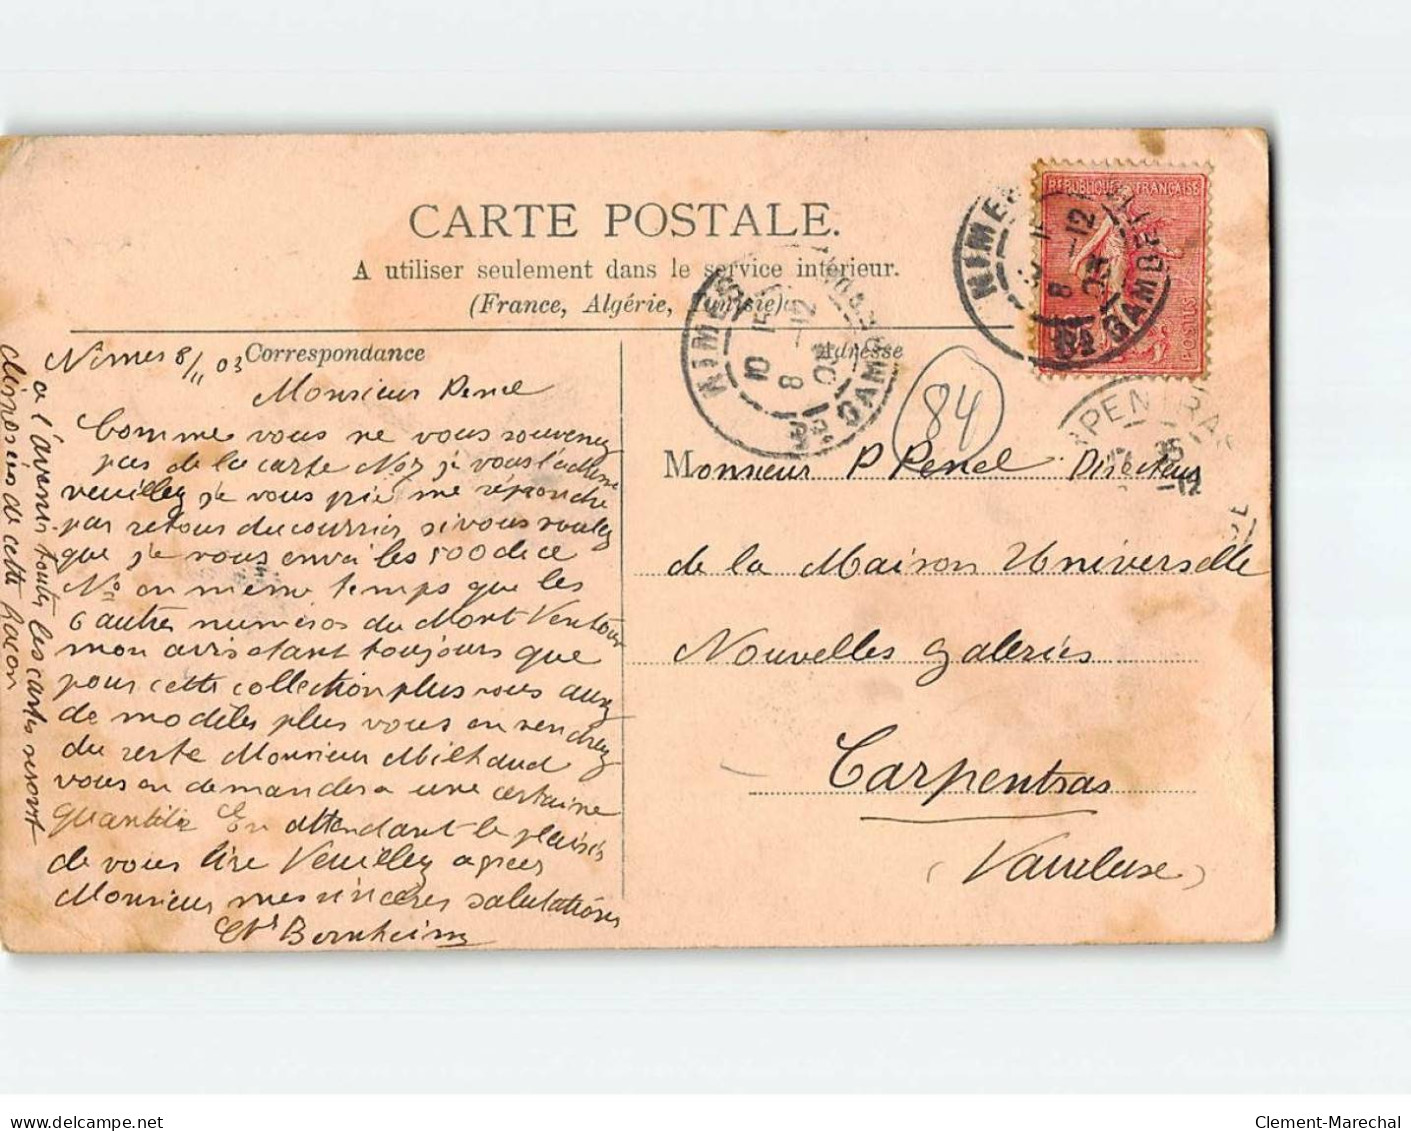 CARTE POSTALE.
A utiliser seulement dans le service intérieur.
(France, Algérie, Tunisie)
Correspondance
Adresse
Nimes 8/11 03
Monsieur Penel
Comme vous ne vous souvenez
pas de la carte No7 je vous l'adresse
veuillez je vous prie me répondre
par retour du courrier si vous voulez
que je vous envoi les 500 de ce
No en même temps que les
6 autres numéros du Mont Ventoux
mon avis étant toujours que
pour cette collection plus vous aurez
de modèles plus vous en vendrez
du reste Monsieur Milhaud
vous en demandera une certaine
quantité En attendant le plaisir
de vous lire Veuillez agréer
Monsieur mes sincères salutations
Bernheim
à l'avenir toutes les cartes seront
divisées de cette façon
84
Monsieur P Penel Directeur
de la Maison Universelle
Nouvelles Galeries
Carpentras
(Vaucluse)
REPUBLIQUE FRANÇAISE
POSTES
NIMES
GAMBETTA
10 15
8 -12
03
NIMES
GAMBETTA
15
8 -12
03
CARPENTRAS
-12
Clement-Marechal
delcampe.net